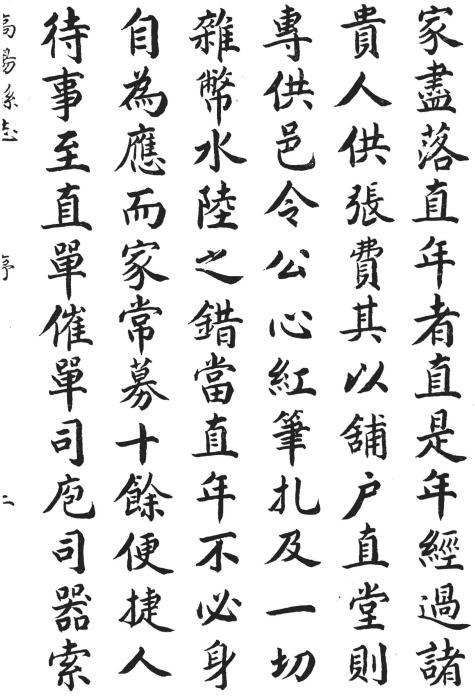 家盡落直年者直是年經過諸
貴人供張費其以舖户直堂則
專供邑令公心紅筆扎及一切
雜幣水陸之錯當直年不必身
自為應而家常募十餘便捷人
待事至直單催單司庖司器索
高陽縣志 序 二